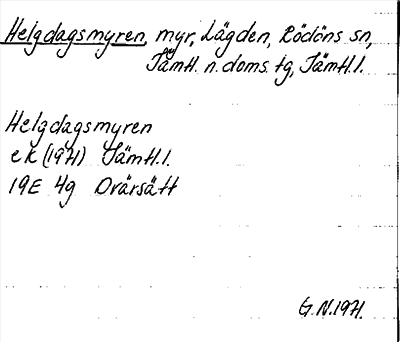 Helgdagsmyren, myr, Lägden, Rödöns sn,
Jämtl. n. doms. tg, Jämtl. l.
Helgdagsmyren
ek (1971) Jämtl. l.
19E 4g Dvärsätt
G.N. 1971.